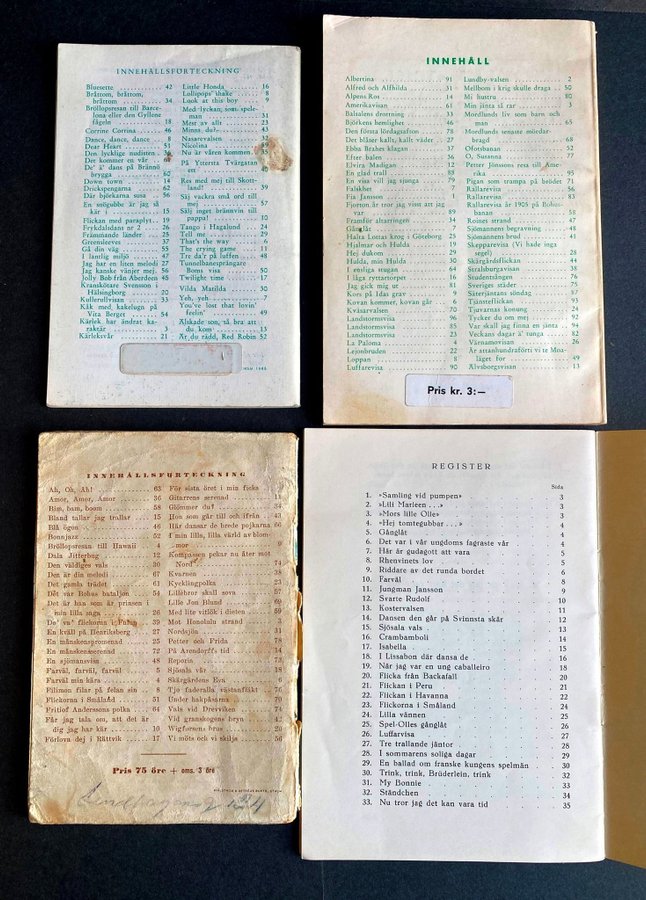 INNEHÅLLSFÖRTECKNING
Bluesette 42
Bråttom, bråttom,
bråttom 34
Bröllopsresan till Barce-
lona eller den Gyllene
fågeln 18
Corrine Corrina 46
Dance, dance, dance 8
Dear Heart 51
Den lycklige nudisten
Det kommer en vår
De' ä' dans på Brännö
brygga 60
Down town 14
Drickspengarna 62
Där björkarna susa 56
En snögubbe är jag så
kär i 15
Flickan med paraplyt
Frykdalsdans nr 2 26
Främmande länder 25
Greensleeves 37
Gå din väg 55
I lantlig miljö 47
Jag har en liten melodi 27
Jag kanske vänjer mej 56
Jolly Bob från Aberdeen 45
Kranskötare Svensson i
Hälsingborg 20
Kullerullvisan 33
Kåk med kakelugn på
Vita Berget 54
Kärlek har ändrat ka-
raktär 3
Kärleksvår 21
Little Honda 16
Lollipops' shake 6
Look at this boy 9
Med lyckan som spele-
man 31
Mest av allt 23
Minns du? 43
Nasarevalsen 33
Nicolina 49
Nu är våren kommen 35
På Yttersta Tvärgatan
ett 40
Res med mej till Skott-
land! 39
Sälj vackra små ord till
mej 57
Sälj inget brännvin till
pappa! 10
Tango i Hagalund 24
Tell me 29
That's the way 6
The crying game 11
Tre da'r på luffen 48
Tunnelbanesprängar
Boms visa 50
Twilight time 17
Vilda Matilda 30
Yeh, yeh 7
You've lost that lovin'
feelin' 49
Älskade son, så bra att
du kom 13
Är du rädd, Red Robin 52
INNEHÅLL
Albertina 91
Alfred och Alfhilda 31
Alpens Ros 14
Amerikavisan 61
Balsalens drottning 33
Björkens hemlighet 46
Den första lördagsafton 78
Det blåser kallt, kallt väder 27
Ebba Brahes klagan 37
Efter balen 36
Elvira Madigan 12
En glad träll 88
En visa vill jag sjunga 79
Falskhet 7
Fia Jansson 1
Fjorton år tror jag visst att jag
var 89
Framför altarringen 34
Gånglåt 7
Halta Lottas krog i Göteborg 25
Hjalmar och Hulda 19
Hej dukom 29
Hulda, min Hulda 30
I ensliga stugan 64
I låga ryttartorpet 16
Jag gick mig ut 81
Kors på Idas grav 9
Kovan kommer, kovan går 6
Kväsarvalsen 70
Landstormsvisa 96
Landstormsvisa 85
Landstormsvisa 23
La Paloma 4
Lejonbruden 22
Loppan 8
Luffarevisa 90
Lundby-valsen 2
Mellbom i krig skulle draga 50
Mi hustru 80
Min jänta så rar 3
Mordlunds liv som barn och
man 65
Mordlunds senaste mördar
bragd 68
Olofsbanan 52
O, Susanna 77
Petter Jönssons resa till Ame-
rika 95
Pigan som trampa på brödet 71
Rallarevisa 51
Rallarevisa 83
Rallarevisa år 1905 på Bohus-
banan 58
Roines strand 47
Sjömannens begravning 48
Sjömannens brud 41
Skepparevisa (Vi hade inga
segel) 38
Skärgårdsflickan 44
Stralsburgavisan 38
Studentsången 76
Sveriges städer 75
Säterjäntans söndag 87
Tjänsteflickan 93
Tjuvarnas konung 24
Tycker du om mej 92
Var skall jag finna en jänta 94
Veckans dagar ä' tunga 82
Värnamovisan 26
Är attanhundraförti vi te Moa-
läget for 49
Älvsborgsvisan 13
Pris kr. 3:—
INNEHÅLLSFÖRTECKNING
Ah, Oh, Ah! 63
Amor, Amor, Amor 36
Bim, bam, boom 58
Bland tallar jag trallar 15
Blå ögon 46
Bonnjazz 52
Bröllopsresan till Hawaii 4
Dala Jitterbug 12
Den väldiges vals 30
Den är din melodi 67
Det gamla trädet 61
Det var Bohus bataljon 54
Det är han som är prinsen i
min lilla saga 26
De' va' flickorna i Falun 39
En kväll på Henriksberg 27
En månskenspromenad 23
En månskensserenad 72
En sjömansvisa 48
Farväl, farväl, farväl 5
Farväl min kära 4
Filimon filar på felan sin 8
Flickorna i Småland 51
Fritiof Anderssons polka 64
Får jag tala om, att det är
dig jag har kär 10
Förlova dej i Rättvik 17
För sista öret i min ficka
Gitarrens serenad 11
Glömmer du? 34
Hon som går till och ifrån 43
Här dansar de brede pojkarna 66
I min lilla, lilla värld av blom-
mor 9
Kompassen pekar nu åter mot
Nord 74
Kvarnen 38
Kycklingpolka 23
Lillebror skall sova 57
Lille Jon Blund 69
Med lite vitlök i dieten 59
Mot Honolulu strand 7
Nordsjön 31
Petter och Frida 78
På Arendorffs tid 14
Reporin 73
Sjösala vår 18
Skärgårdens Eva 6
T'jo faderalla västanfläkt 76
Under hakpåsarna 70
Vals vid Dreiviken 3
Vid granskogens bryn 45
Wigforsens brus 20
Vi möts och vi skiljs 56
Pris 75 öre + oms. 3 öre
REGISTER
Sida
1. »Samling vid pumpen» 3
2. »Lili Marleen . . .» 3
3. »Mors lille Olle» 3
4. »Hej tomtegubbar . . .» 4
5. Gånglåt 4
6. Det var i vår ungdoms fagraste vår 4
7. Här är gudagott att vara 5
8. Rhenvinets lov 5
9. Riddare av det runda bordet 6
10. Farväl 8
11. Jungman Jansson 9
12. Svarte Rudolf 10
13. Kostervalsen 11
14. Dansen den går på Svinnsta skär 12
15. Sjösala vals 13
16. Crambamboli 14
17. Isabella 15
18. I Lissabon där dansa de 16
19. När jag var en ung caballero 18
20. Flicka från Backafall 20
21. Flickan i Peru 21
22. Flickan i Havanna 22
23. Flickorna i Småland 24
24. Lilla vännen 25
25. Spel-Olles gånglåt 26
26. Luffarvisa 27
27. Tre trallande jäntor 28
28. I sommarens soliga dagar 29
29. En ballad om franske kungens spelmän 30
30. Trink, trink, Brüderlein, trink 32
31. My Bonnie 33
32. Ständchen 34
33. Nu tror jag det kan vara tid 35